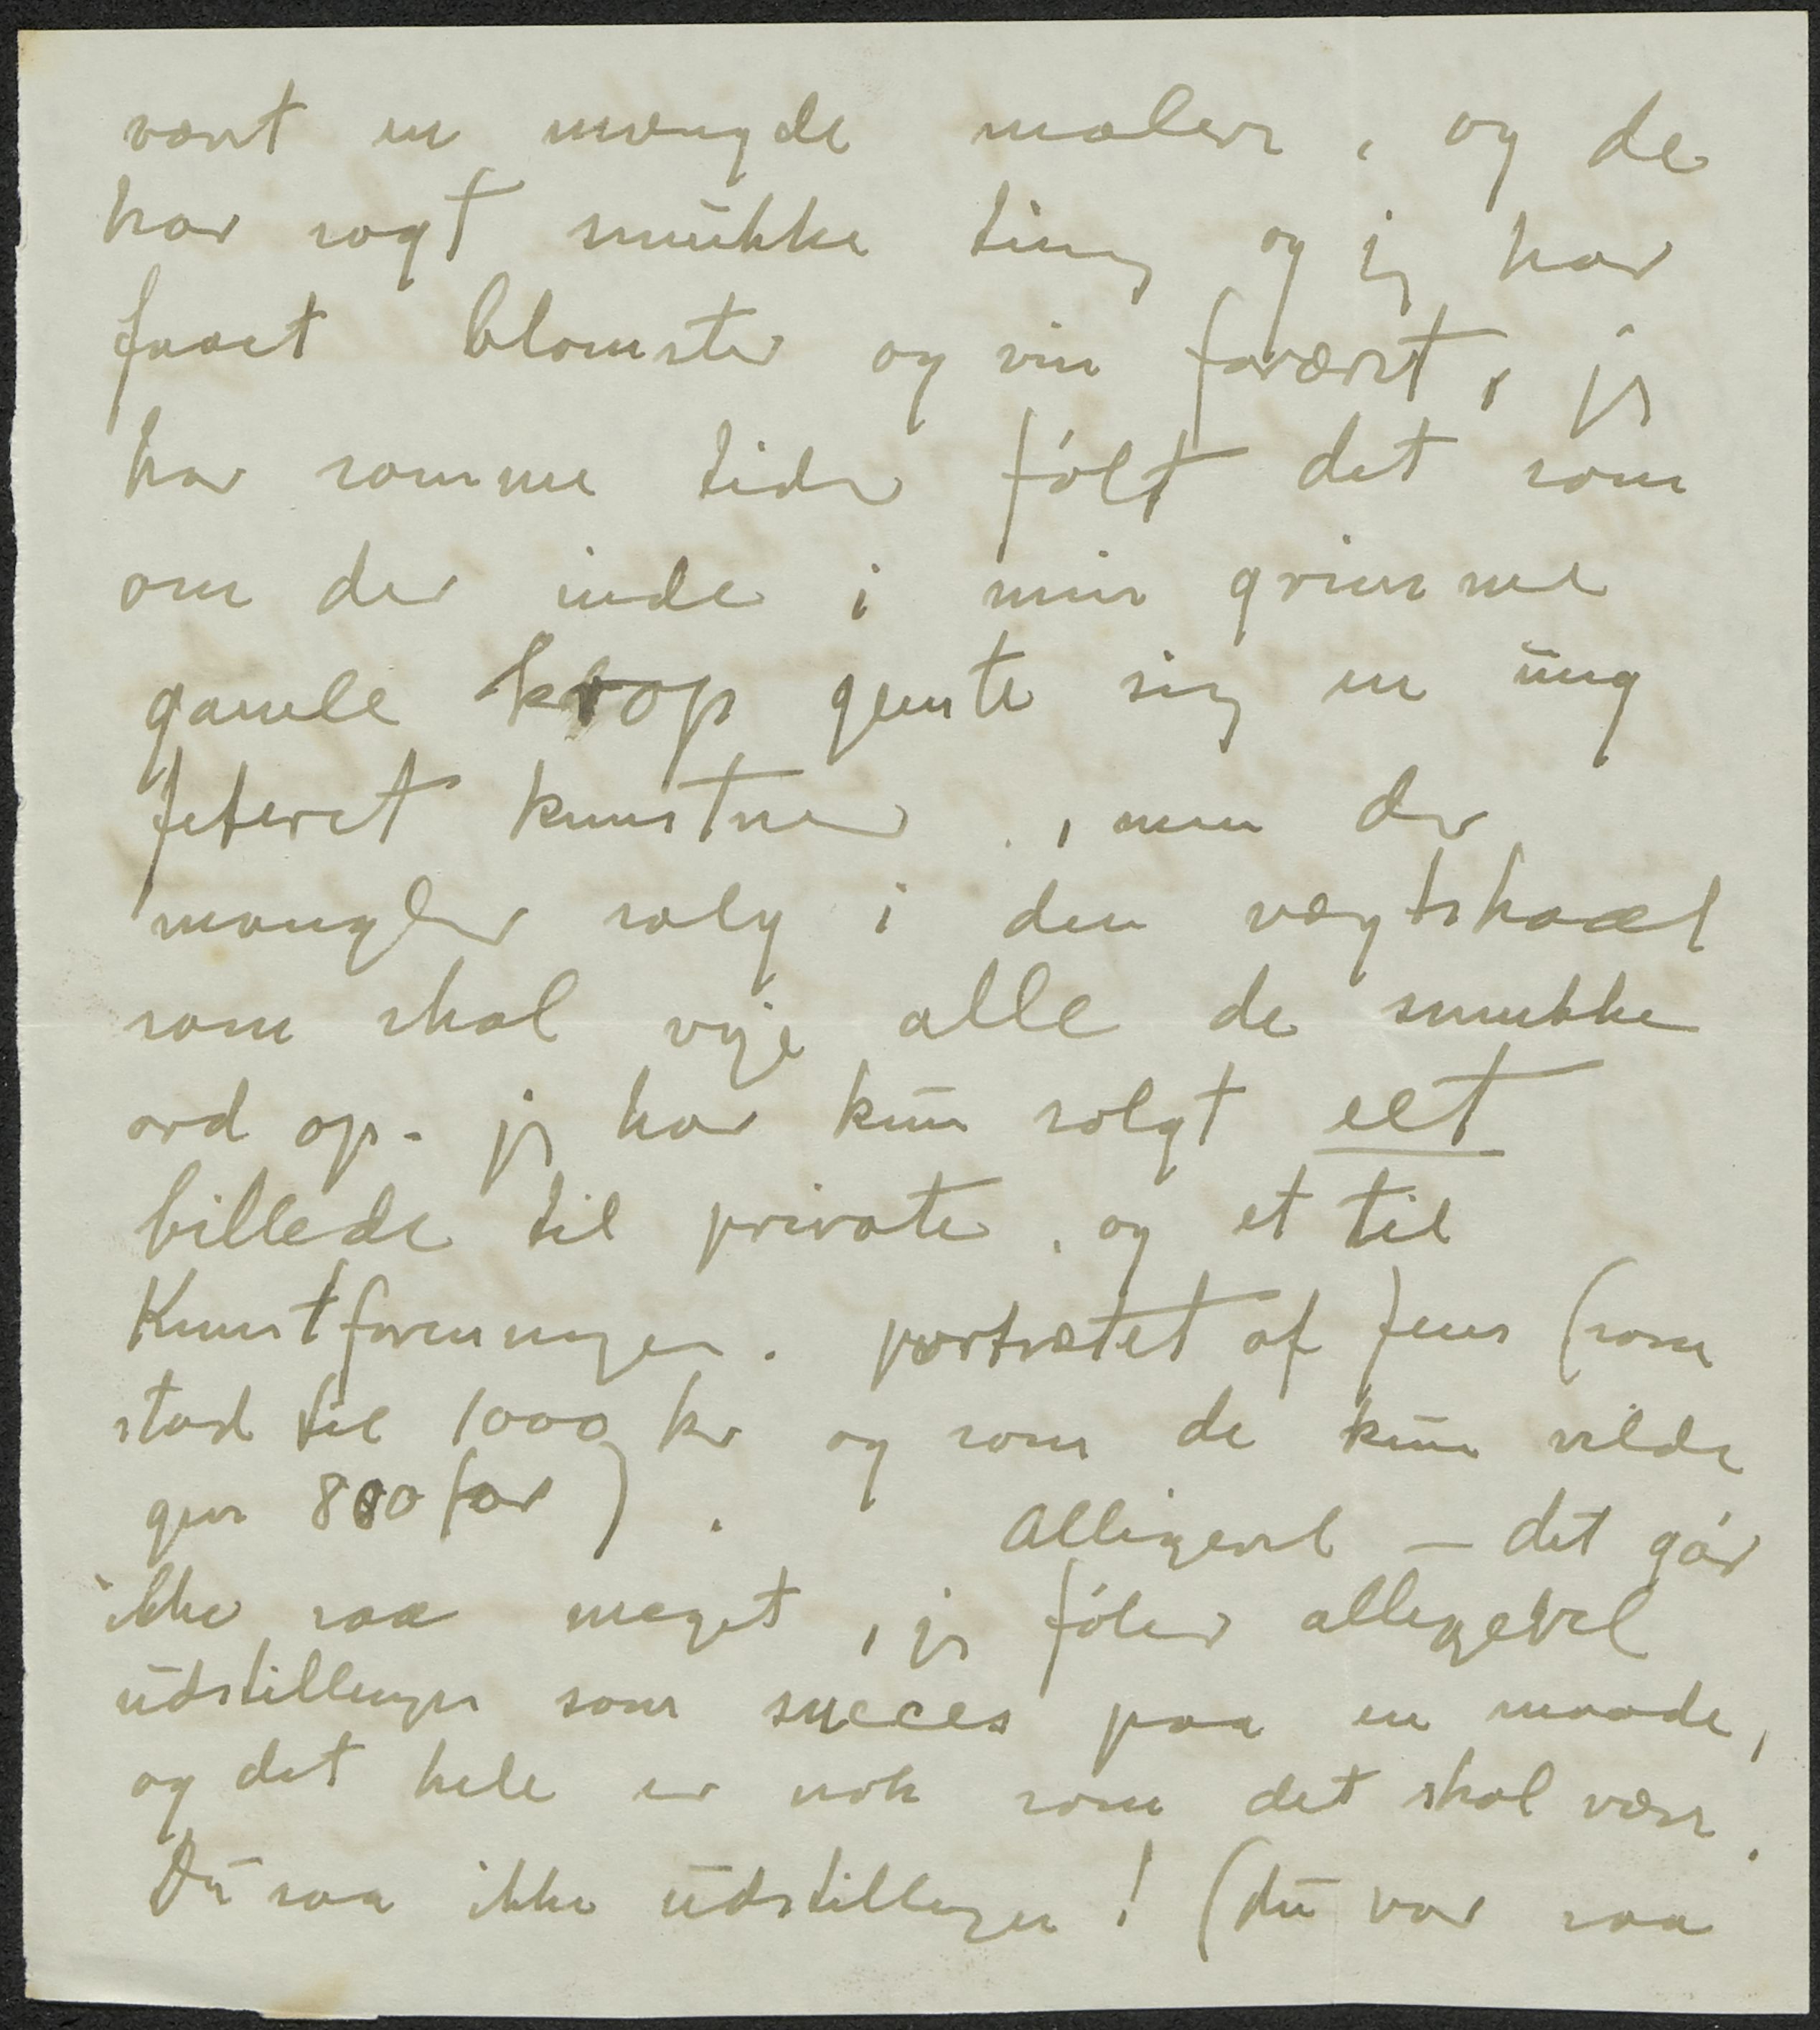 vært en mængde malere, og de
har sagt smukke ting og jeg har
faaet blomster og vin foræret, jeg
har somme tider følt det som
om der inde i min grimme
gamle krop gemte sig en ung
feteret kunstner, men der
mangler salg i den vægtskaal
som skal veje alle de smukke
ord op. jeg har kun solgt eet
billede til private. og et til
Kunstforeningen. portrætet af Jens (som
stod til 1000 kr og som de kun vilde
give 800 for). Alligevel — det gør
ikke saa meget, jeg føler alligevel
udstillingen som succes paa en maade,
og det hele er nok som det skal være.
Du saa ikke udstillingen! (du var saa